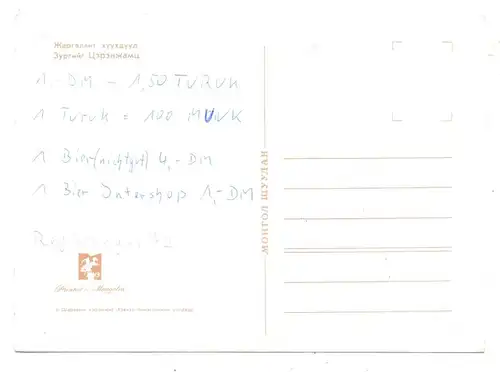 Жаргалант хүүхдүүд
Зургийг Цэрэнжамц
1 - DM - 1,50 TURUK
1 Turuk = 100 MUVK
1 Bier (nichtgut) 4,- DM
1 Bier Intershop 1,- DM
МОНГОЛ ШУУДАН